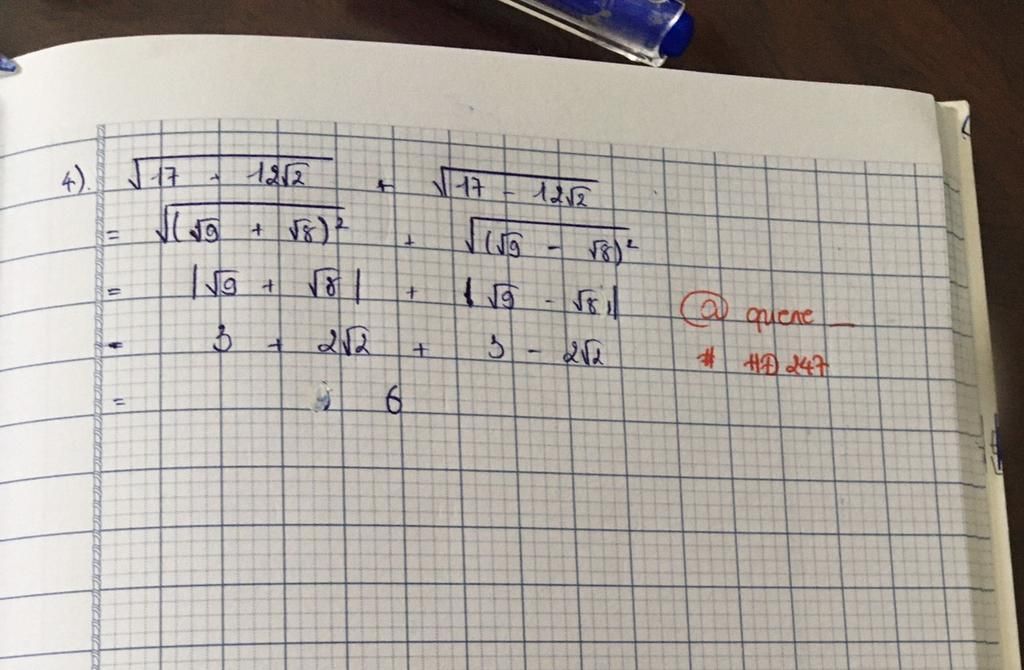 4). √(17 + 12√2) + √(17 - 12√2)
= √((√9 + √8)²) + √((√9 - √8)²)
= |√9 + √8| + |√9 - √8|
= 3 + 2√2 + 3 - 2√2
= 6
@ quene _
# HD 247